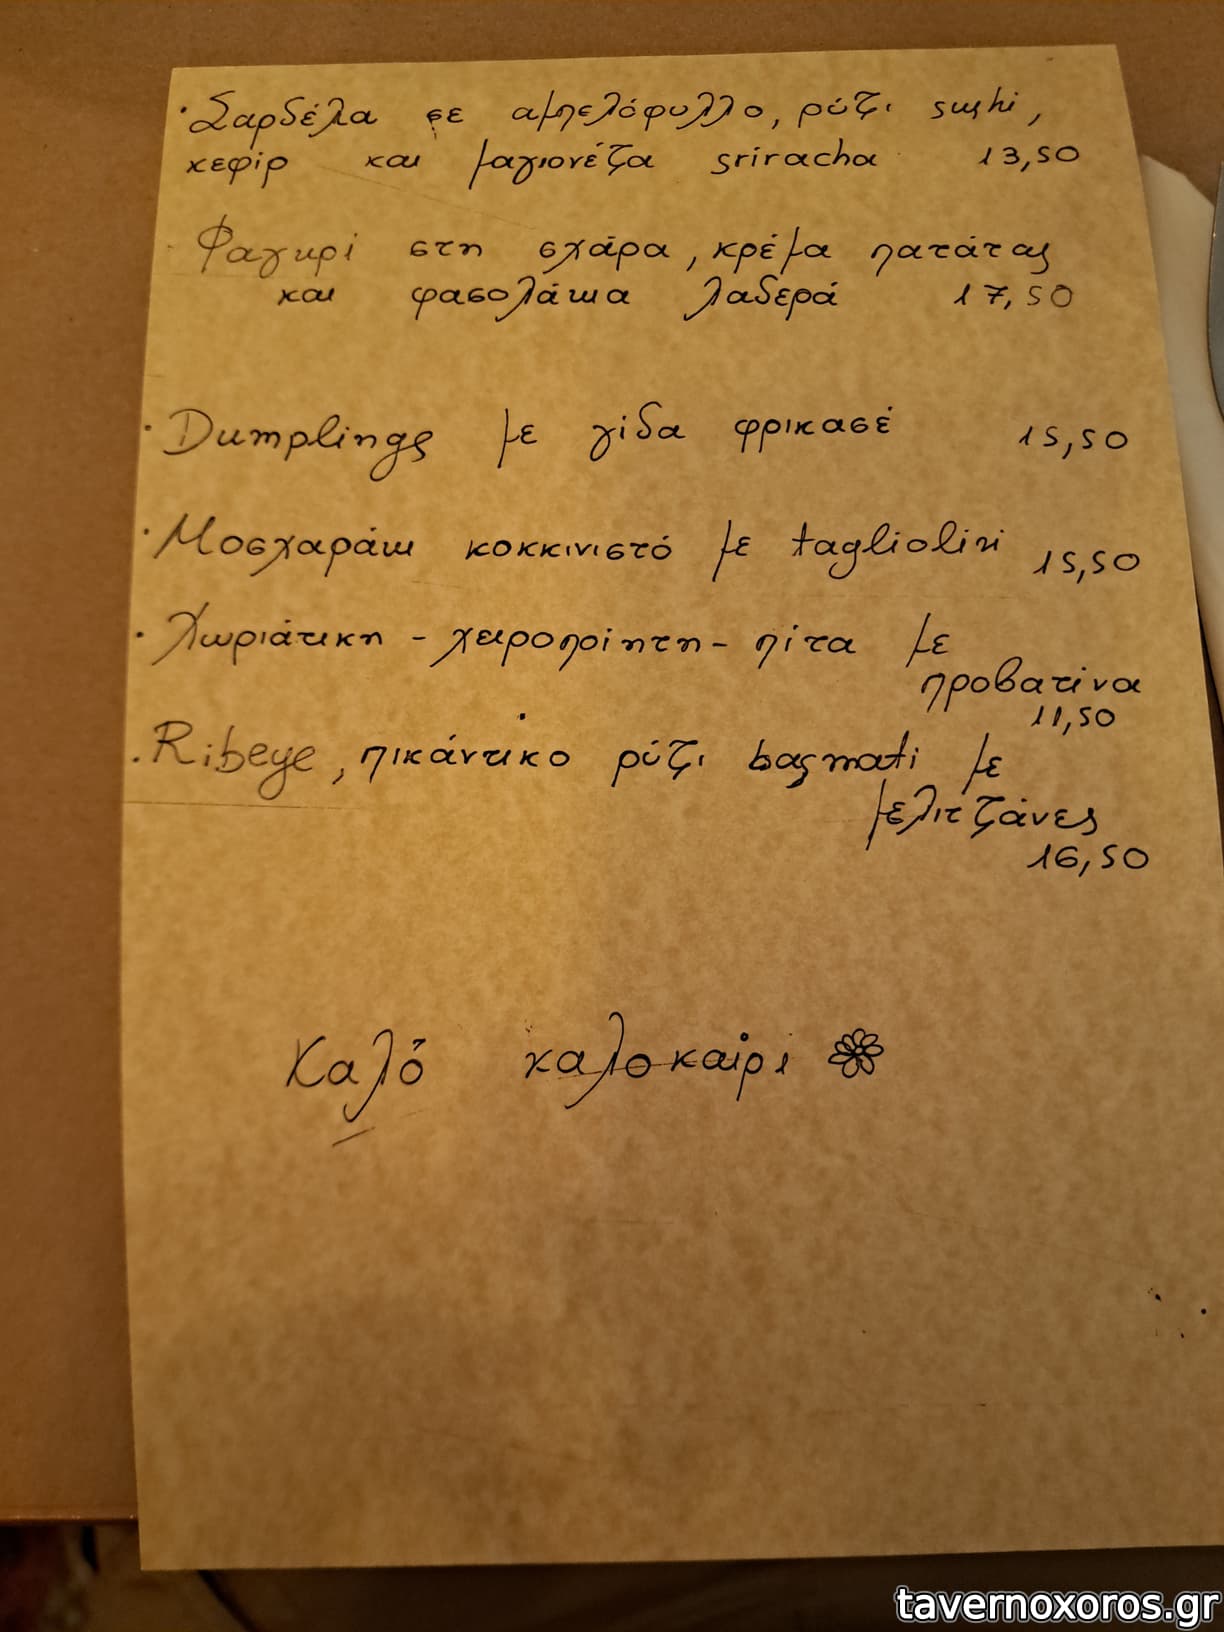 · Σαρδέλα σε αμπελόφυλλο, ρύζι sushi,
κεφίρ και μαγιονέζα sriracha 13,50
- Φαγκρί στη σχάρα, κρέμα πατάτας
και φασολάκια λαδερά 17,50
· Dumplings με γίδα φρικασέ 15,50
· Μοσχαράκι κοκκινιστό με tagliolini 15,50
· Χωριάτικη - χειροποίητη - πίτα με
προβατίνα
11,50
· Ribeye, πικάντικο ρύζι basmati με
μελιτζάνες
16,50
Καλό καλοκαίρι
tavernoxoros.gr